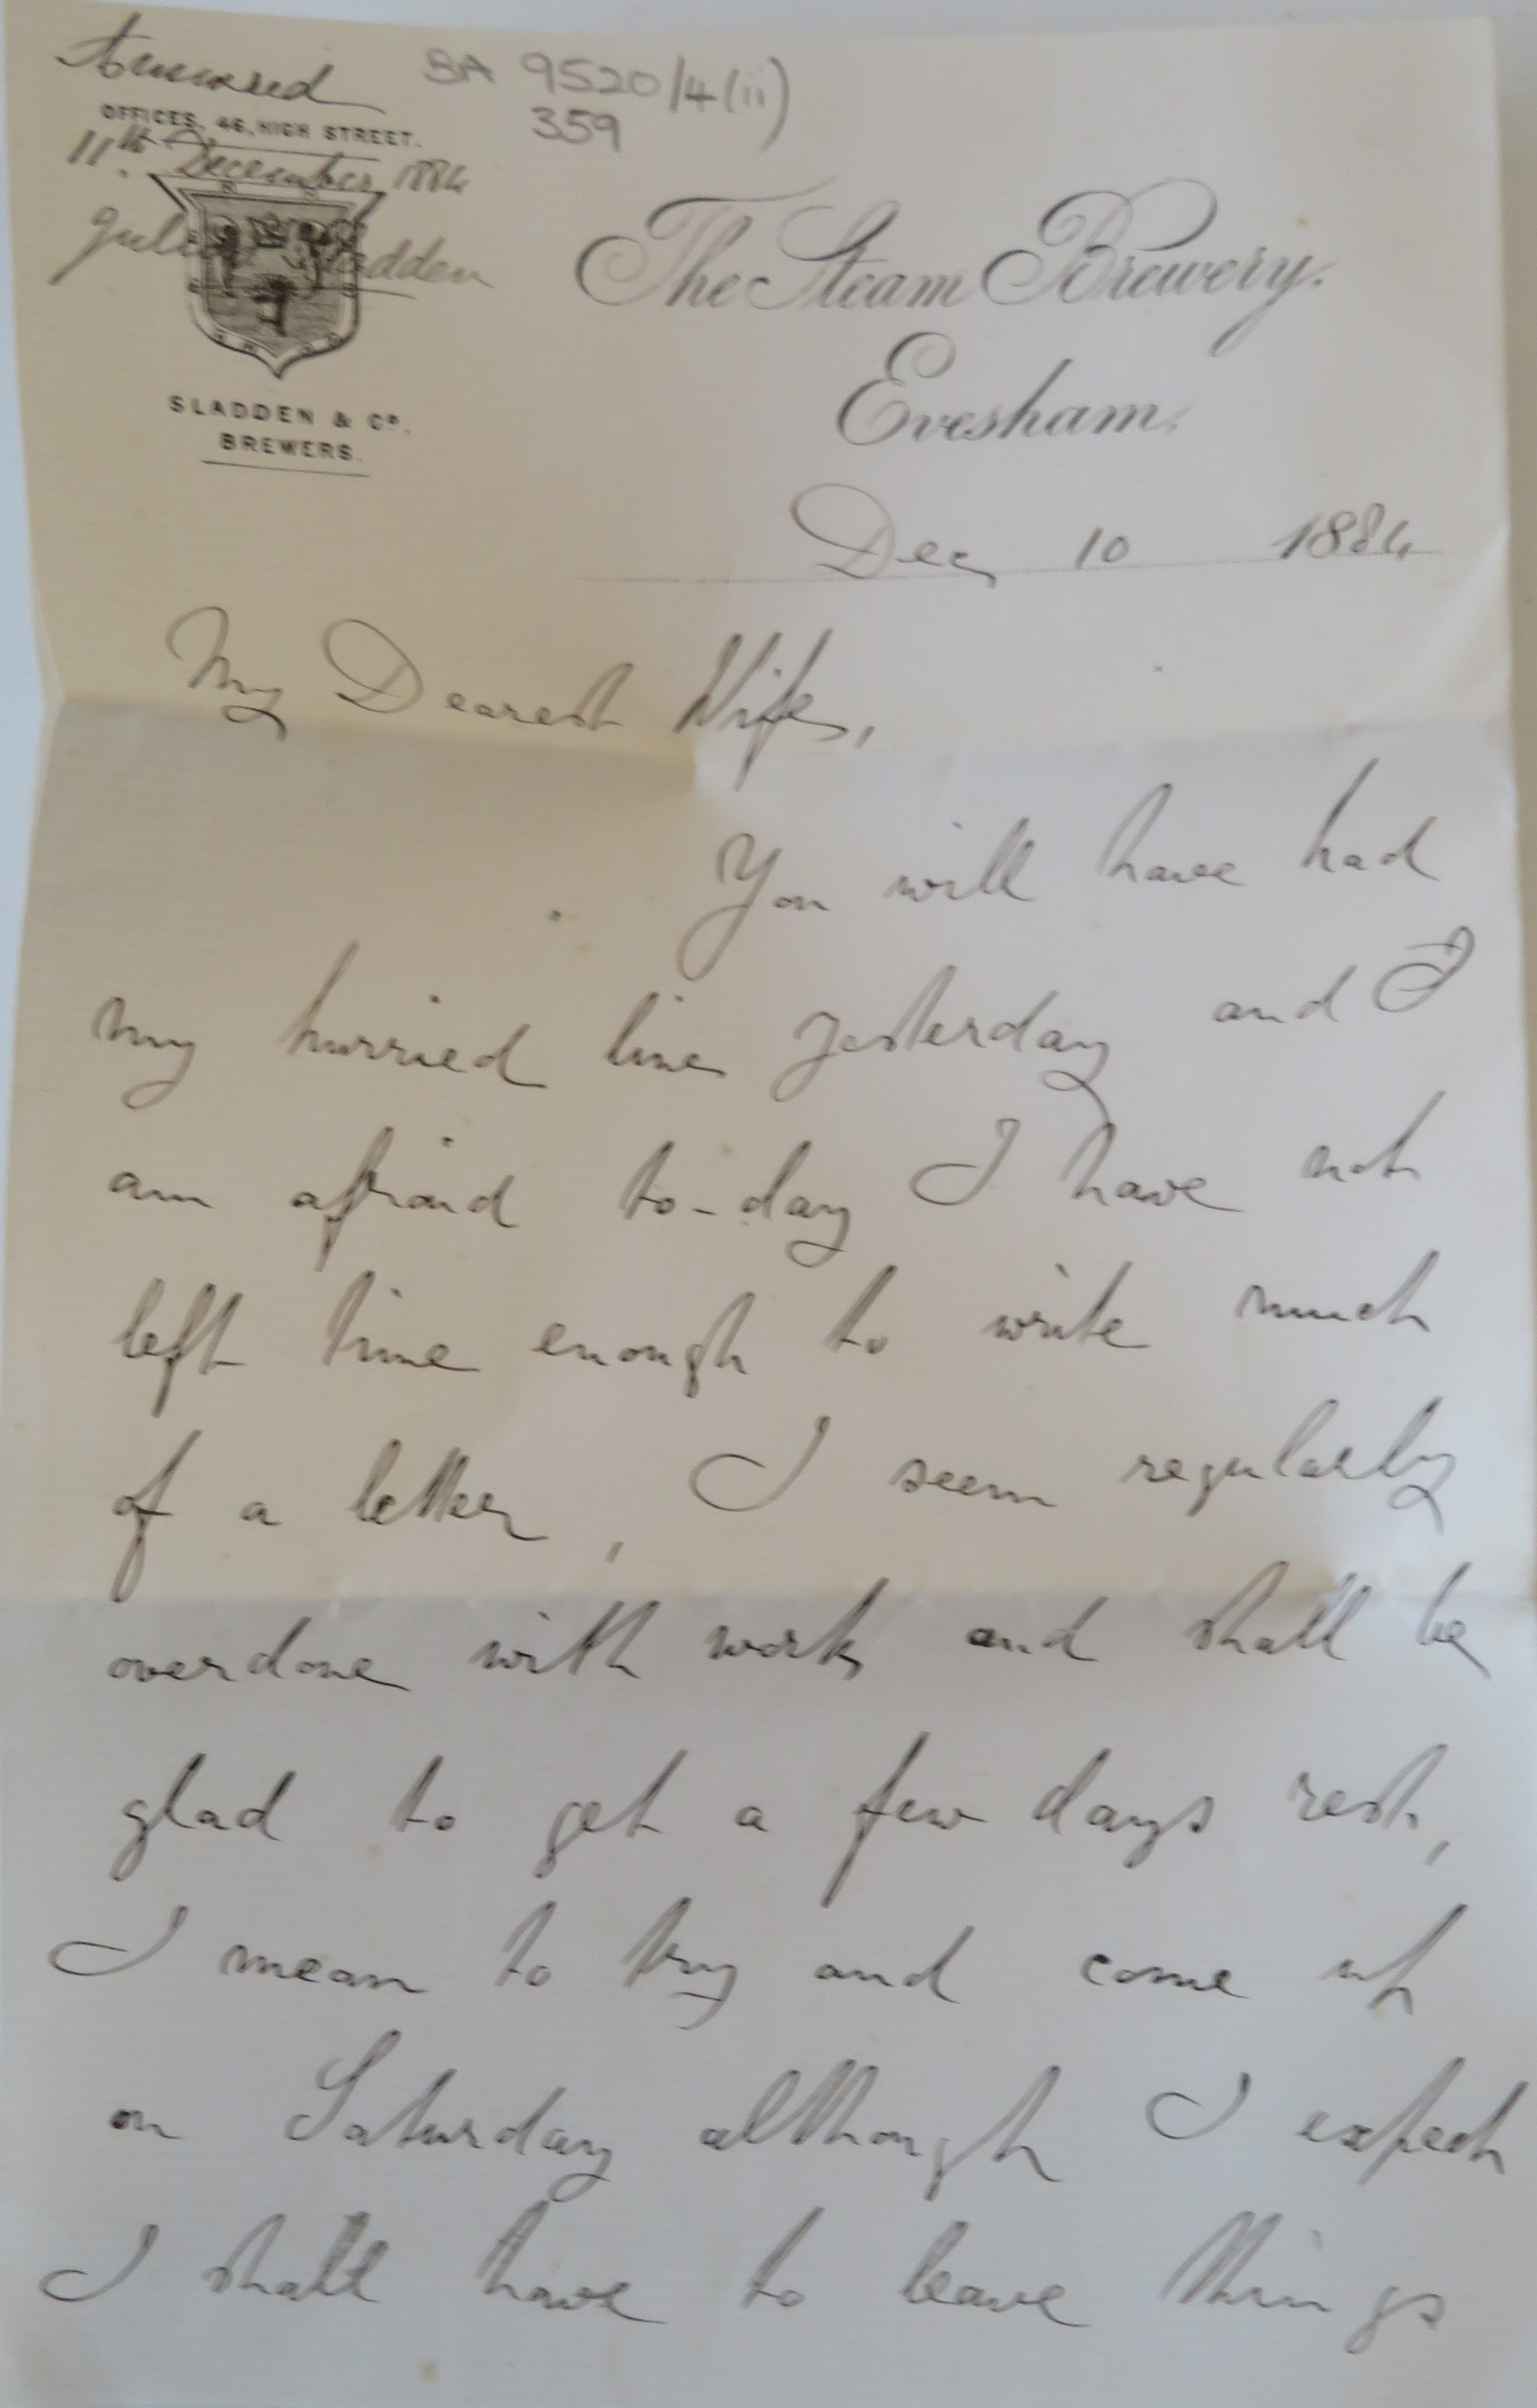 Answered
BA 9520/4(ii)
359
OFFICES, 46, HIGH STREET.
11th December 1884
Julius Sladden
SLADDEN & Co.
BREWERS.
The Steam Brewery.
Evesham.
Dec 10 1884
My Dearest Wife,
You will have had
my hurried lines yesterday and I
am afraid to-day I have not
left time enough to write much
of a letter, I seem regularly
overdone with work and shall be
glad to get a few days rest,
I mean to try and come up
on Saturday although I expect
I shall have to leave things